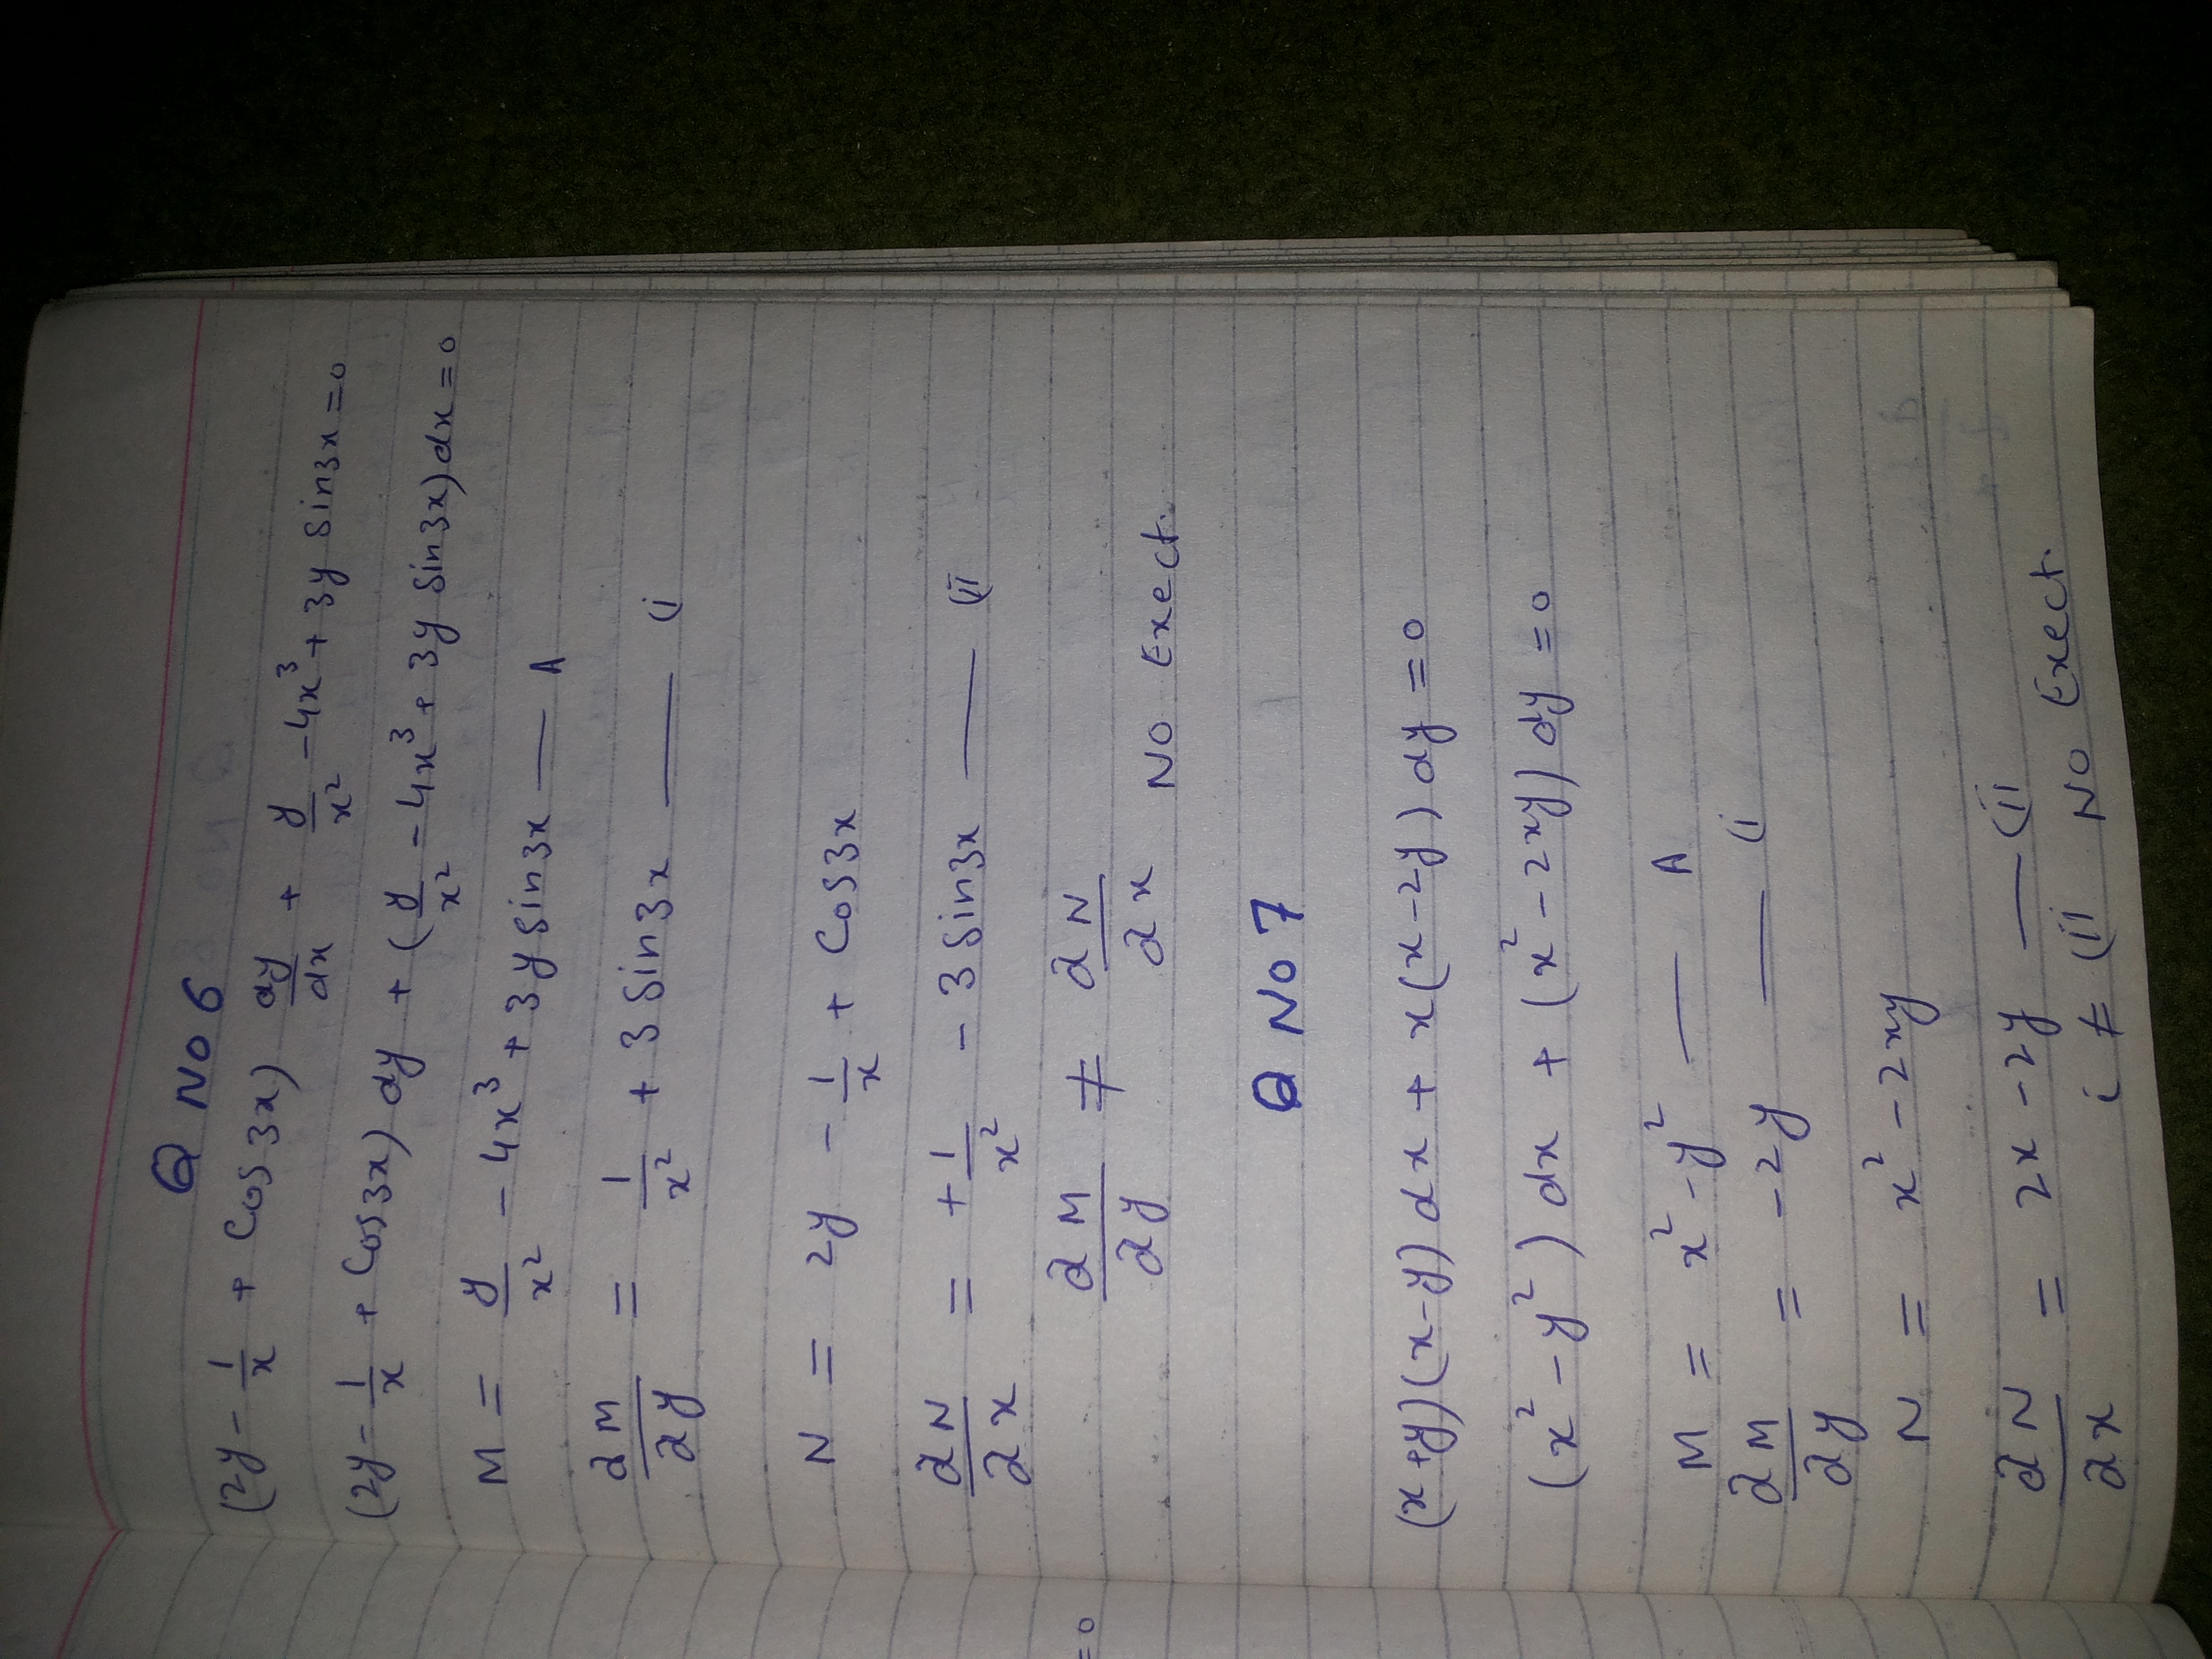 Q No 6
(2y - 1/x + Cos 3x) dy/dx + y/x² - 4x³ + 3y Sin3x = 0
(2y - 1/x + Cos3x) dy + (y/x² - 4x³ + 3y Sin3x) dx = 0
M = y/x² - 4x³ + 3y Sin3x — A
∂M/∂y = 1/x² + 3 Sin3x — (i
N = 2y - 1/x + Cos3x
∂N/∂x = +1/x² - 3 Sin3x — (ii
= 0
∂M/∂y ≠ ∂N/∂x No Exect.
Q No 7
(x+y)(x-y) dx + x(x-2y) dy = 0
(x² - y²) dx + (x² - 2xy) dy = 0
M = x² - y² — A
∂M/∂y = -2y — (i
N = x² - 2xy
∂N/∂x = 2x - 2y — (ii
i ≠ (ii No Exect.